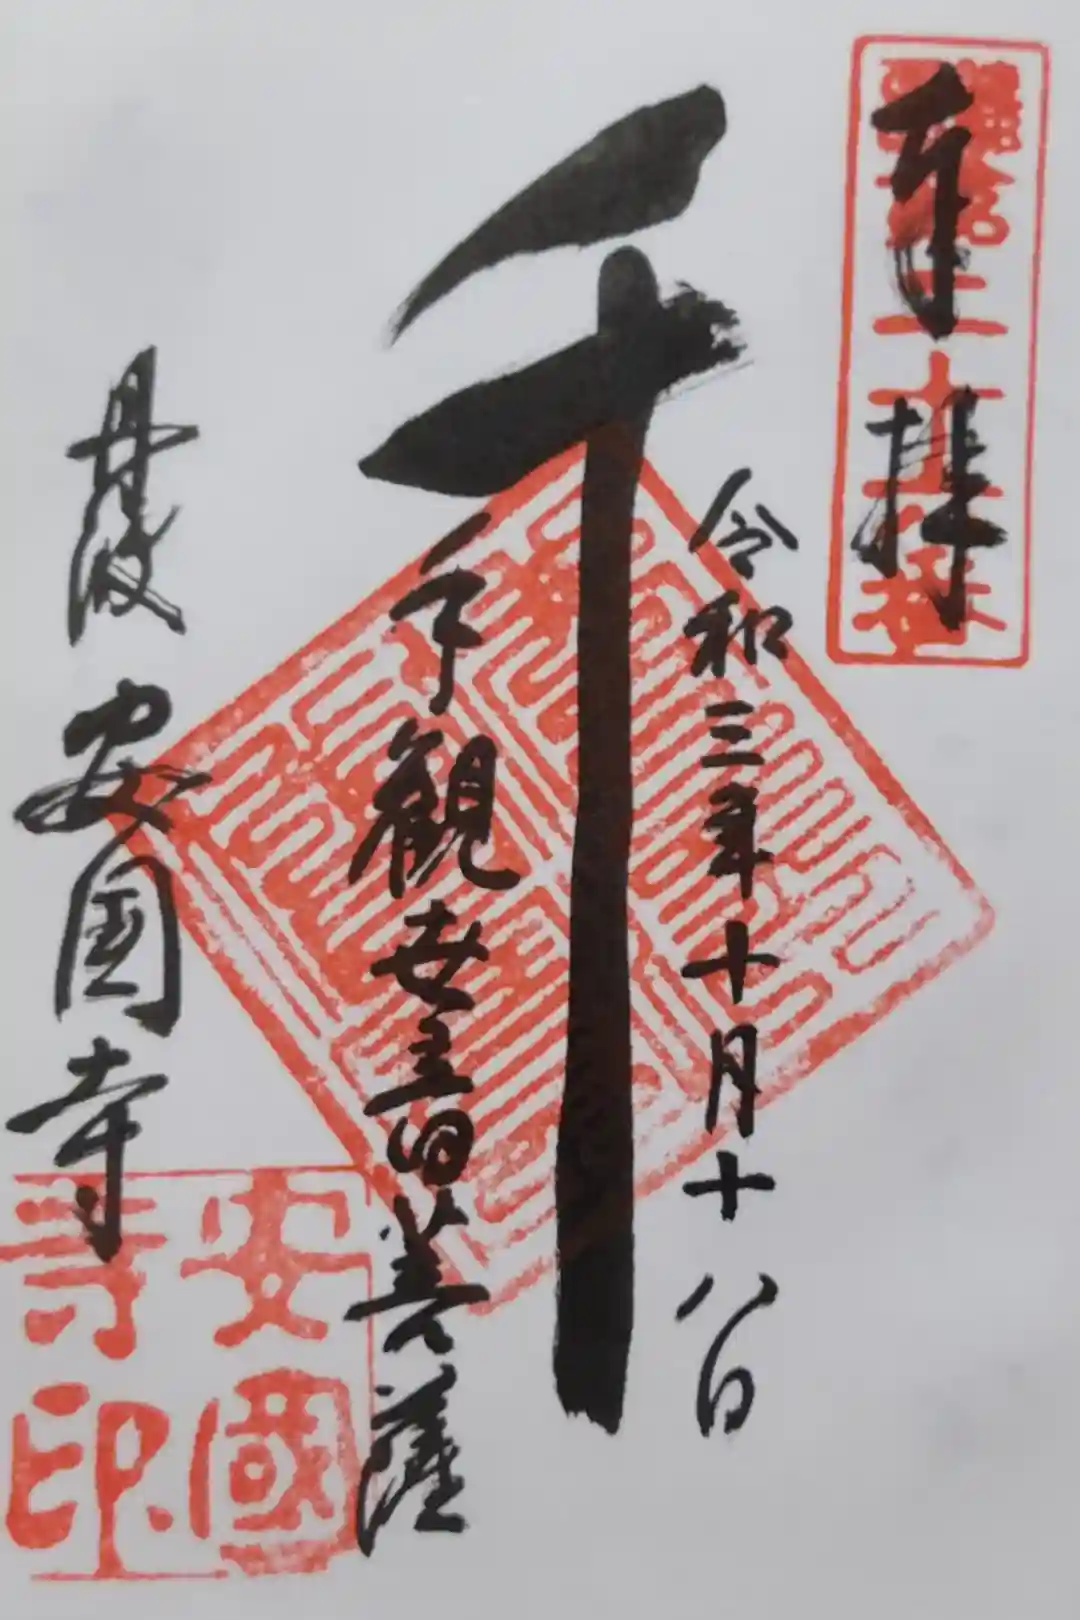 奉拝
令和三年十月十八日
千
手観世音菩薩
丹波 安国寺
安國
寺印